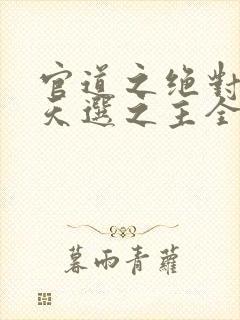 官道之绝對
天選之主全
暮雨青蘿